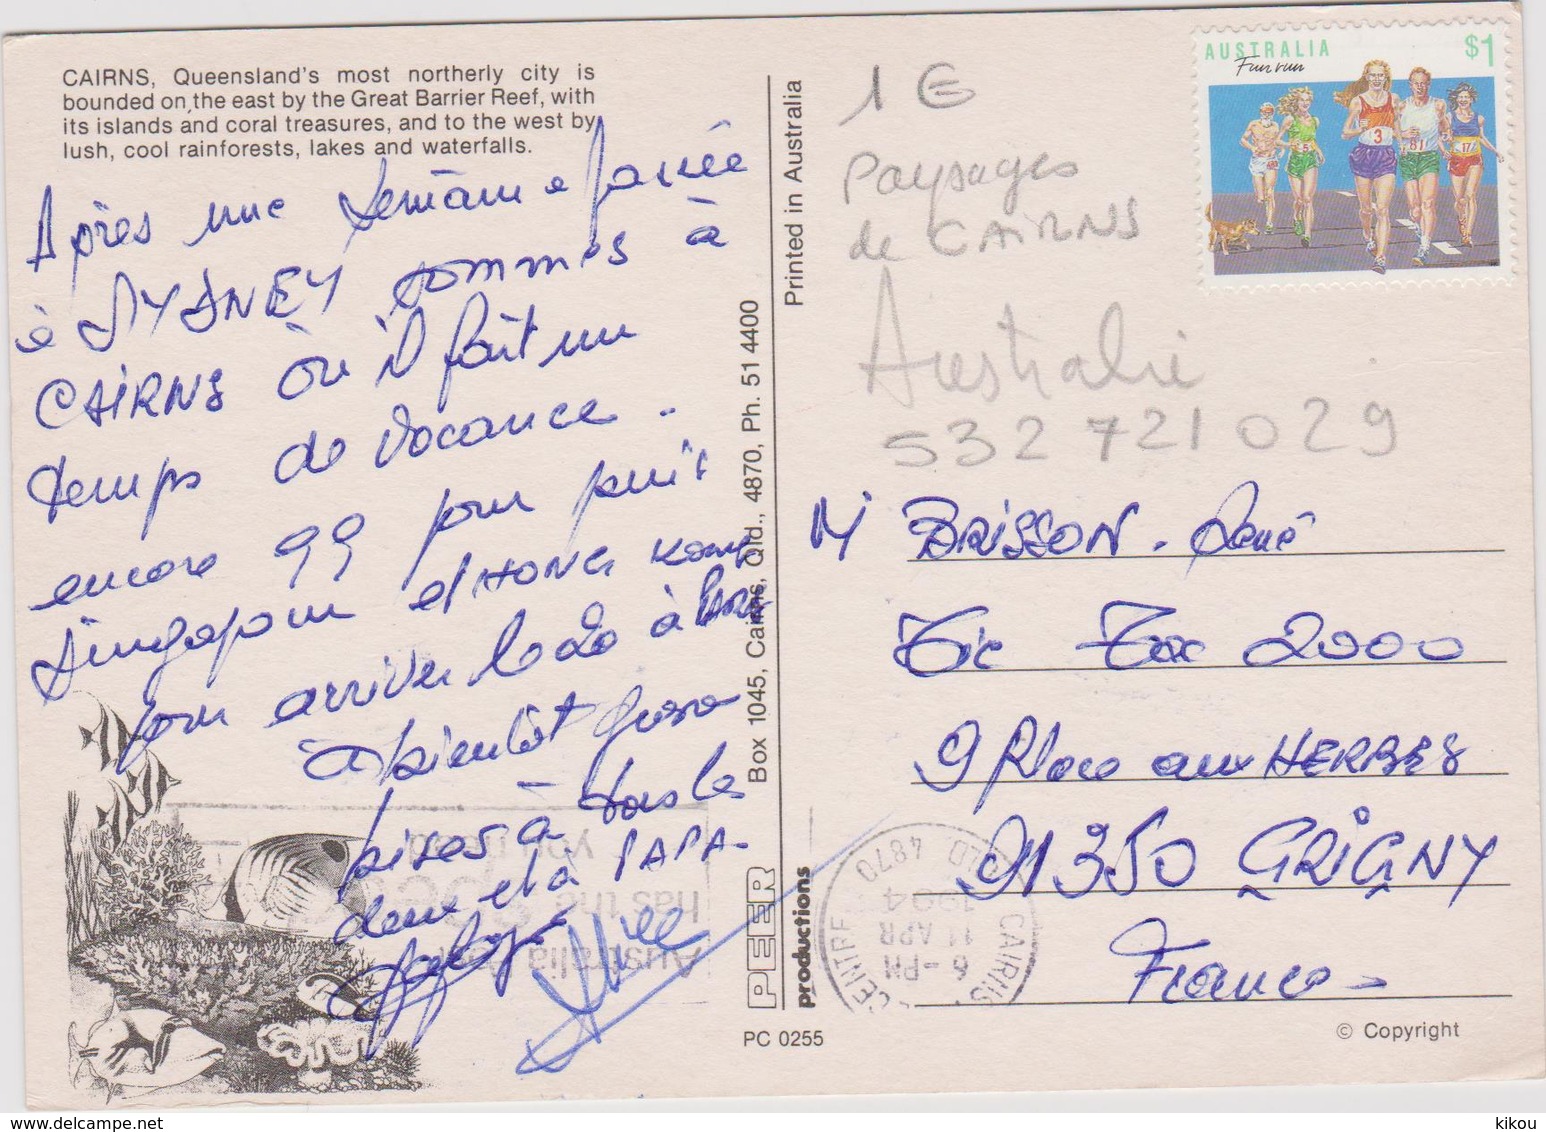 CAIRNS, Queensland's most northerly city is
bounded on the east by the Great Barrier Reef, with
its islands and coral treasures, and to the west by
lush, cool rainforests, lakes and waterfalls.
Après une semaine passée
à SYDNEY sommes à
CAIRNS où il fait un
temps de vacance.
encore pour puis
Singapour et HONG KONG
pour arriver le 20 à
à bientôt
bises à tous les
deux et à PAPA-
Printed in Australia
Box 1045, Cairns, Qld., 4870, Ph. 51 4400
PEER
productions
PC 0255
1 E
Paysages
de CAIRNS
Australie
532 721 029
AUSTRALIA
$1
Fun run
3
5
81
17
M BRISSON. René
Tic Tac 2000
9 Place aux HERBES
91350 GRIGNY
France -
6 - PM
11 APR
1994
CAIRNS
CENTRE
QLD 4870
Australia
has the
you need
© Copyright
kikou